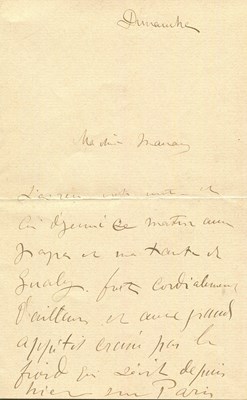 Dimanche
Ma chère Maman
J'ai
ai déjeuné ce matin avec
papa et ma tante et
fort cordialement
d'ailleurs et avec grand
appétit creusé par le
froid qui sévit depuis
hier sur Paris